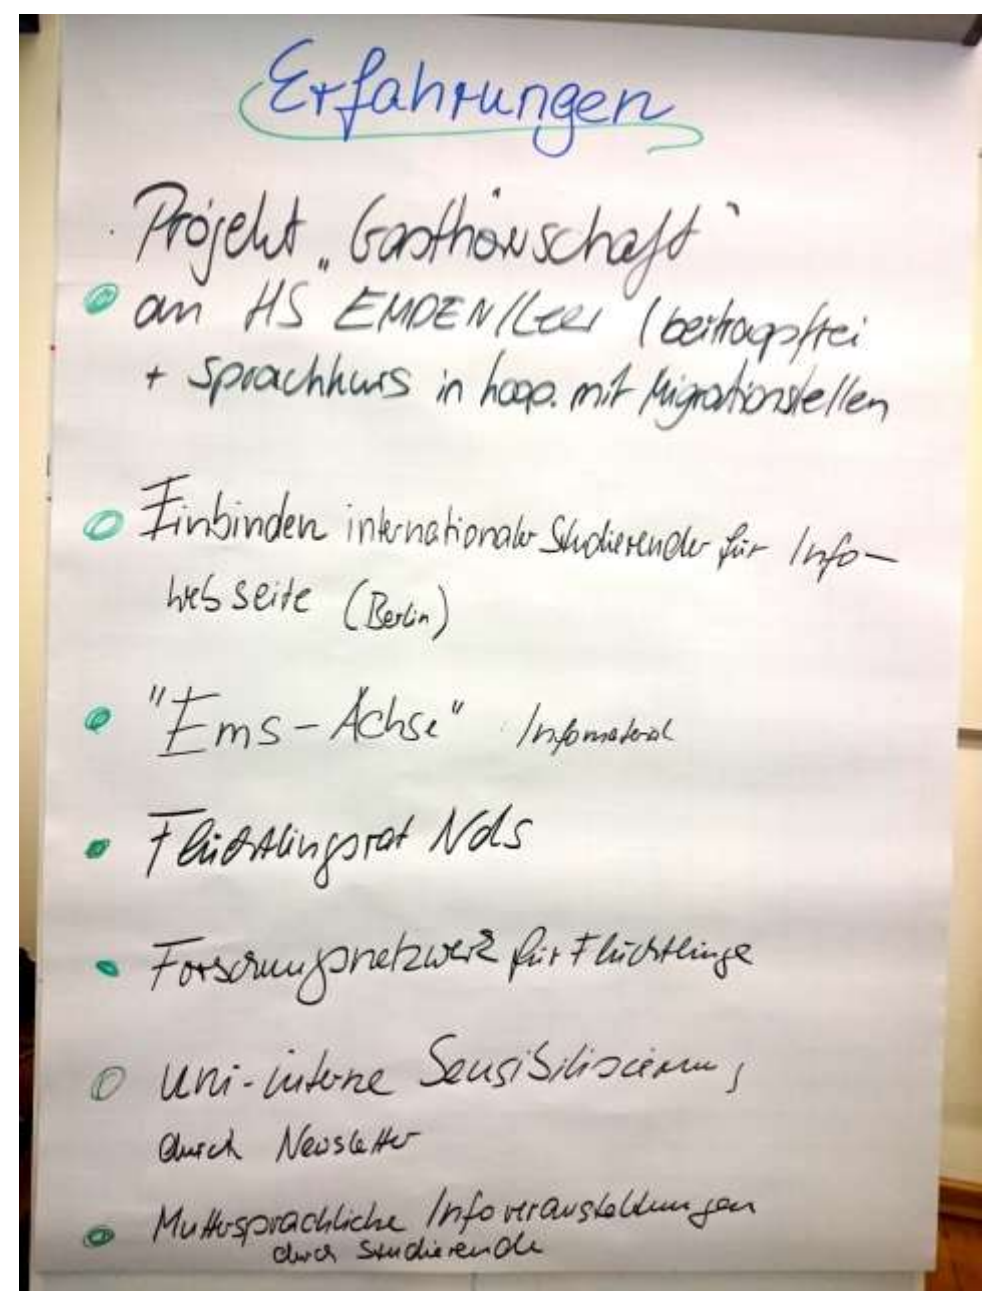 Erfahrungen
Projekt „Gasthörerschaft"
an HS EMDEN/Leer (beitragsfrei
+ Sprachkurs in koop. mit Migrationstellen
Einbinden internationaler Studierender für Info-
webseite (Berlin)
"Ems-Achse" Infomaterial
Flüchtlingsrat Nds
Forschungsnetzwerk für Flüchtlinge
uni-interne Sensibilisierung
durch Newsletter
Muttersprachliche Infoveranstaltungen
durch Studierende